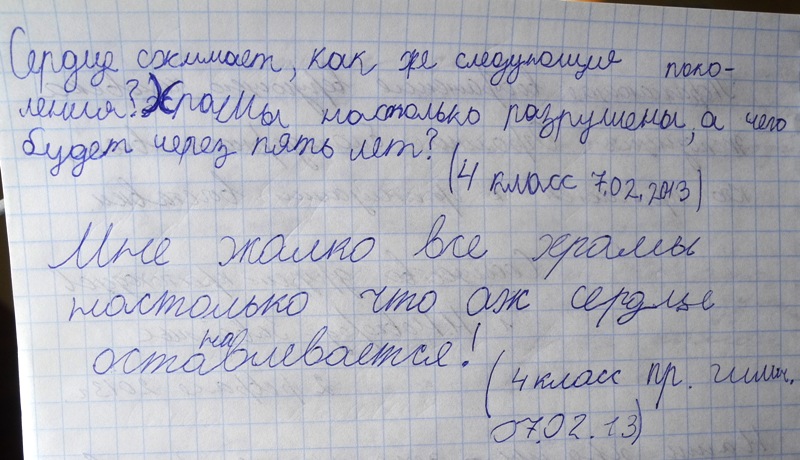 Сердце сжимает, как же следующие поко-
ления? Храмы настолько разрушены, а чего
будет через пять лет?
(4 класс 7.02.2013)
Мне жалко все храмы
настолько что аж сердце
останавлевается!
(4 класс пр. гимн.
07.02.13)